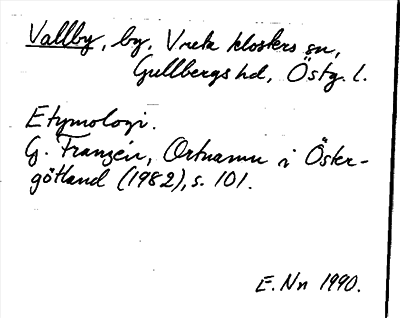 Vallby, by, Vreta klosters sn,
Gullbergs hd, Östg. l.
Etymologi.
G. Franzén, Ortnamn i Öster-
götland (1982), s. 101.
E. Nn 1990.